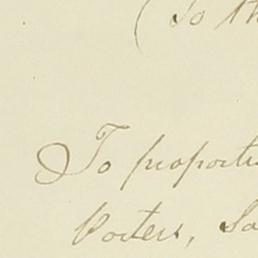 (To th
To proporti
Porters, Sa